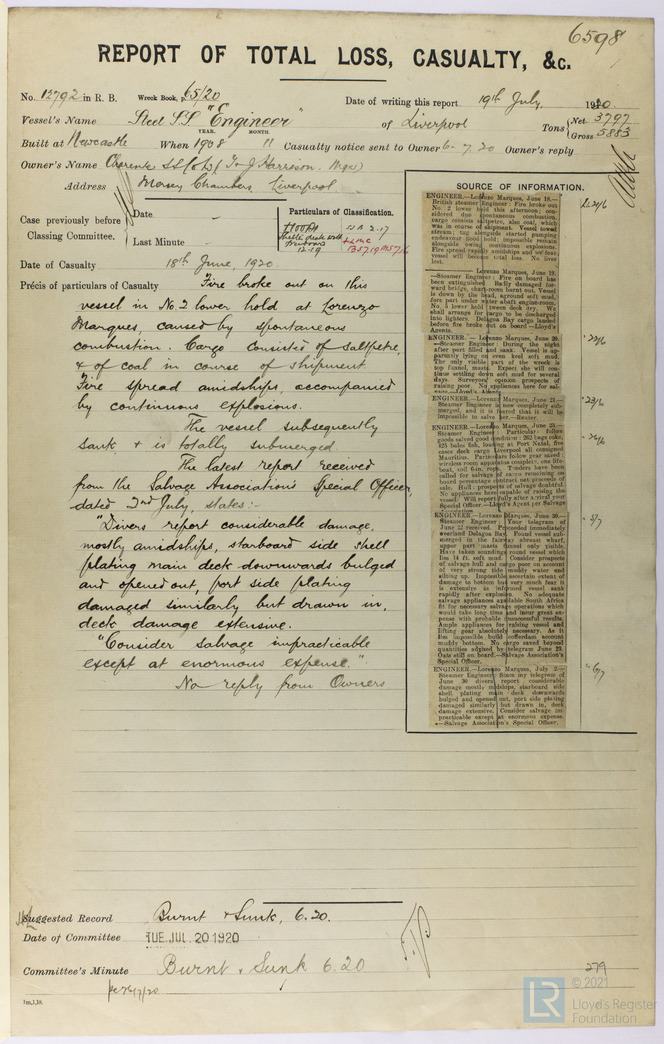 6598
REPORT OF TOTAL LOSS, CASUALTY, &c.
No. 12792 in R. B. Wreck Book, p. 65/20
Date of writing this report 19th July, 1920.
Vessel's Name Steel S.S. "Engineer" of Liverpool Tons Net 3797 Gross 5883
YEAR. MONTH.
Built at Newcastle When 1908 11 Casualty notice sent to Owner 6-7.20 Owner's reply
Owner's Name Charente SS Co Ld (T. & J. Harrison. Mgrs)
Address Mersey Chambers, Liverpool
Case previously before Classing Committee.
Date -
Last Minute -
Particulars of Classification.
+100A1
Shelter deck with
freeboard
12.19
+LMC
Date of Casualty 18th June, 1920.
Précis of particulars of Casualty Fire broke out on this
vessel in No. 2 lower hold at Lorenzo
Marques, caused by spontaneous
combustion. Cargo consisted of saltpetre,
& of coal in course of shipment.
Fire spread amidships accompanied
by continuous explosions.
The vessel subsequently
sank & is totally submerged.
The latest report received
from the Salvage Association's Special Officer,
dated 2nd July, states:-
"Divers report considerable damage,
mostly amidships, starboard side shell
plating main deck downwards bulged
and opened out, port side plating
damaged similarly but drawn in,
deck damage extensive.
"Consider salvage impracticable
except at enormous expense."
No reply from Owners
SOURCE OF INFORMATION.
ENGINEER.—Lorenzo Marques, June 18.—
British steamer Engineer: Fire broke out
No. 2 lower hold this afternoon; considered
due spontaneous combustion,
cargo consists saltpetre, also coal, which
was in course of shipment. Vessel towed
stream; tug alongside started pumping
endeavour flood hold; impossible remain
alongside owing continuous explosions.
Fire spread rapidly amidships and we fear
vessel will become total loss. No lives
lost.
Lorenzo Marques, June 19.
—Steamer Engineer: Fire on board has
been extinguished. Badly damaged forward
bridge, chart-room burnt out. Vessel
is down by the head, aground soft mud,
fore part under water abaft engine-room.
No. 5 lower hold tween deck dry. We
shall arrange for cargo to be discharged
into lighters. Delagoa Bay cargo landed
before fire broke out on board.—Lloyd's
Agents.
ENGINEER.—Lorenzo Marques, June 20.
—Steamer Engineer: During the night
after port filled and sank. Vessel is apparently
lying on even keel soft mud.
The only visible part of the wreck is
top funnel, masts. Expect she will continue
settling down soft mud for several
days. Surveyors' opinion prospects of
raising poor. No appliances here for salvage.—Lloyd's Agents.
22/6
ENGINEER.—Lorenzo Marques, June 21.—
Steamer Engineer is now completely submerged,
and it is feared that it will be
impossible to salve her.—Reuter.
23/6
ENGINEER.—Lorenzo Marques, June 25.—
Steamer Engineer: Particulars follow
goods salved good condition: 262 bags coke,
825 bales fish, loading at Port Natal, five
cases deck cargo Liverpool all consigned
Mauritius. Particulars follow gear saved:
wireless room apparatus complete, one lifeboat,
and 6-in. rope. Tenders have been
called for salvage of cargo remaining on
board percentage contract net proceeds of
sale. Hull: prospects of salvage doubtful.
No appliances here capable of raising the
vessel.
26/6
ENGINEER.—Lorenzo Marques, June 30.—
Steamer Engineer: Your telegram of
June 22 received. Proceeded immediately
overland Delagoa Bay. Found vessel submerged
in the fairway abreast wharf,
upper part masts funnel only visible.
Have taken soundings round vessel which
lies 14 ft. soft mud. Consider prospects
of salvage hull and cargo poor on account
of very strong tide muddy water and
silting up. Impossible ascertain extent of
damage to bottom but very much fear it
is extensive as informed vessel sank
rapidly after explosion. No adequate
salvage appliances available South Africa
fit for necessary salvage operations which
would take long time and incur great expense
with probable unsuccessful results.
Ample appliances for raising vessel and
lifting gear absolutely necessary. As it
is impossible build cofferdam account
muddy bottom. No cargo saved beyond
quantities advised by telegram June 23.
Oats still on board.—Salvage Association's
Special Officer.
5/7
ENGINEER.—Lorenzo Marques, July 2.—
Steamer Engineer: Since my telegram of
June 30 divers report considerable
damage mostly midships, starboard side
shell plating main deck downwards
bulged and opened out, port side plating
damaged similarly but drawn in, deck
damage extensive. Consider salvage impracticable
except at enormous expense.
—Salvage Association's Special Officer.
6/7
Suggested Record Burnt & Sunk, 6.20.
Date of Committee TUE. JUL. 20 1920
Committee's Minute Burnt & Sunk 6.20
279
© 2021
LR
Lloyd's Register
Foundation